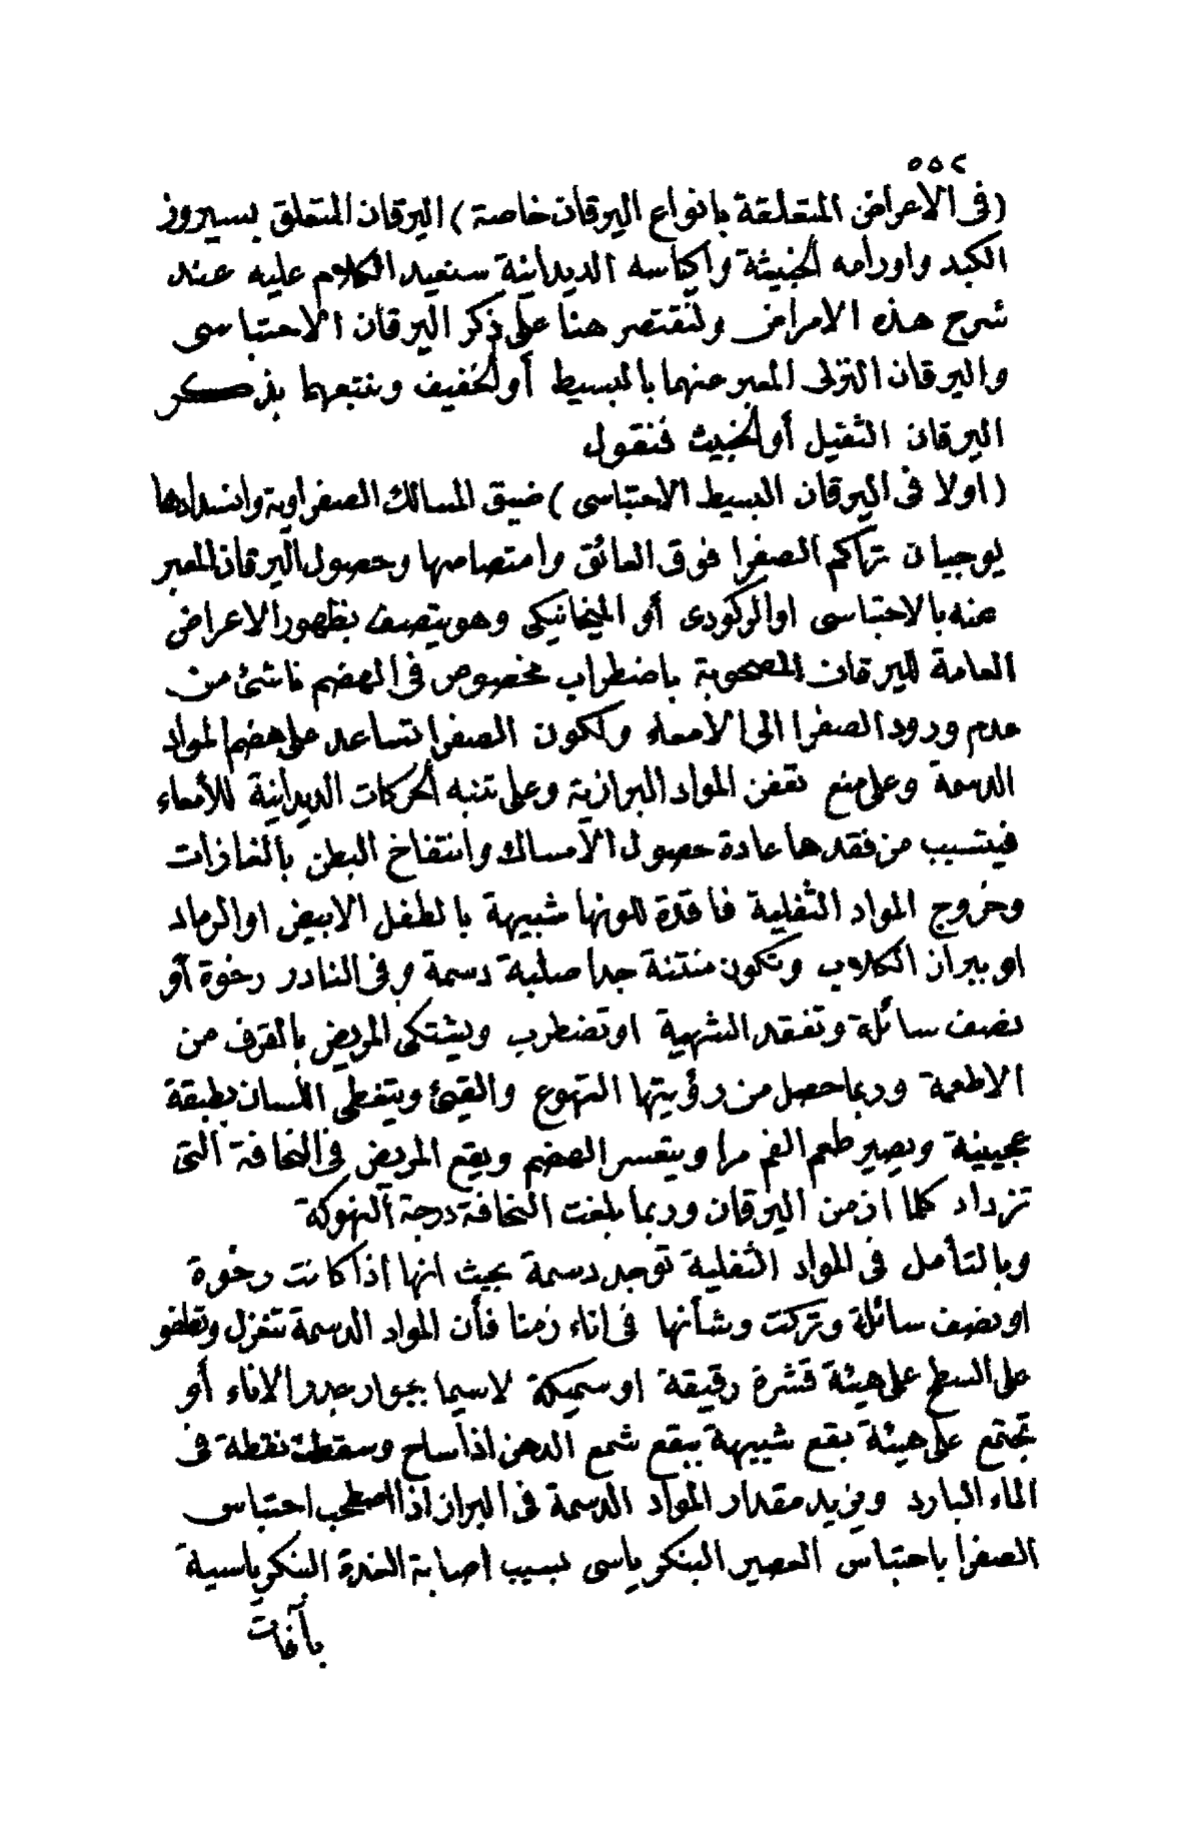 ٥٥٢
(فى الاعراض المتعلقة بانواع اليرقان خاصة) اليرقان المتعلق بسيروز
الكبد واورامه الخبيثة واكياسه الديدانية سنعيد الكلام عليه عند
شرح هذه الامراض ولنقتصر هنا على ذكر اليرقان الاحتباسى
واليرقان النزلى المعبر عنهما بالبسيط أو الخفيف ونتبعهما بذكر
اليرقان الثقيل أو الخبيث فنقول
(اولا فى اليرقان البسيط الاحتباسى) ضيق المسالك الصفراوية وانسدادها
يوجبان تراكم الصفرا فوق العائق وامتصاصها وحصول اليرقان المعبر
عنه بالاحتباسى او الركودى أو الميخانيكى وهو يتصف بظهور الاعراض
العامة لليرقان المصحوبة باضطراب مخصوص فى الهضم ناشئ من
عدم ورود الصفرا الى الأمعاء ولكون الصفرا تساعد على هضم المواد
الدسمة وعلى منع تعفن المواد البرازية وعلى تنبه الحركات الديدانية للأمعاء
فيتسبب من فقدها عادة حصول الامساك وانتفاخ البطن بالغازات
وخروج المواد الثفلية فاقدة للونها شبيهة بالطفل الابيض او الرماد
او ببراز الكلاب وتكون منتنة جدا صلبة دسمة وفى النادر رخوة أو
نصف سائلة وتفقد الشهية او تضطرب ويشتكى المريض بالقرف من
الاطعمة وربما حصل من رؤيتها التهوع والقيئ ويتغطى اللسان بطبقة
عجينية ويصير طعم الفم مرا ويتعسر الهضم ويقع المريض فى النحافة التى
تزداد كلما ازمن اليرقان وربما بلغت النحافة درجة النهوكة
وبالتأمل فى المواد الثفلية توجد دسمة بحيث انها اذا كانت رخوة
او نصف سائلة وتركت وشأنها فى اناء زمنا فأن المواد الدسمة تنعزل وتطفو
على السطح على هيئة قشرة رقيقة او سميكة لاسيما بجوار جدر الاناء أو
تجتمع على هيئة بقع شبيهة ببقع شمع الدهن اذا ساح وسقطت نقطة فى
الماء البارد ويزيد مقدار المواد الدسمة فى البراز اذا اصطحب احتباس
الصفرا باحتباس العصير البنكرياسى بسبب اصابة الغدة البنكرياسية
بآفات